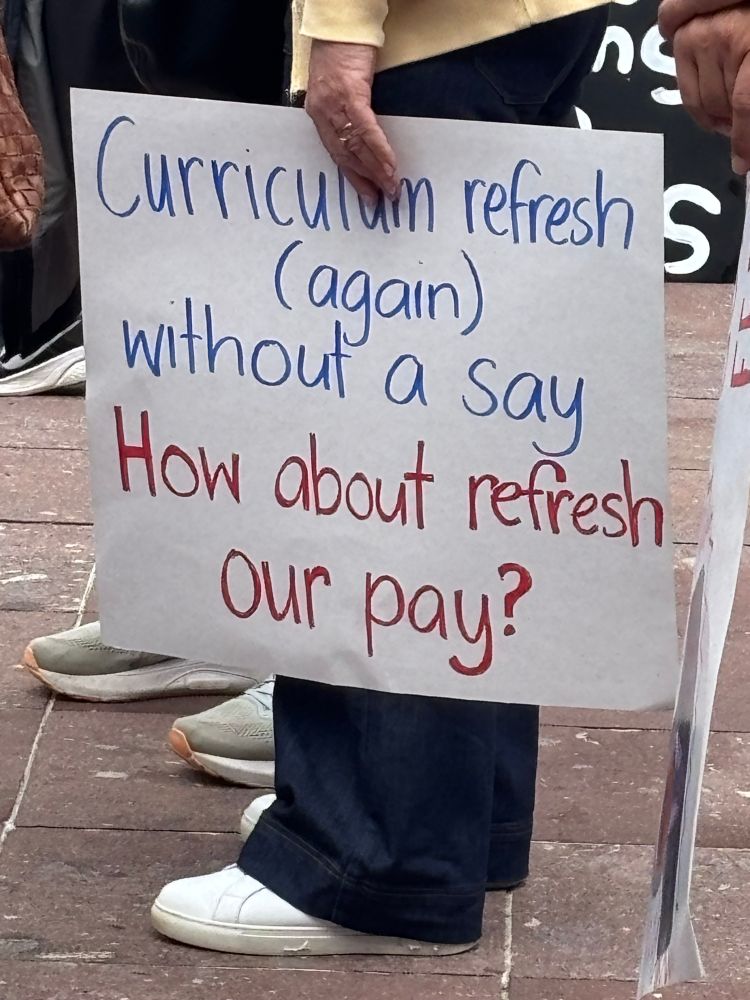 Curriculum refresh
(again)
without a say
How about refresh
our pay?